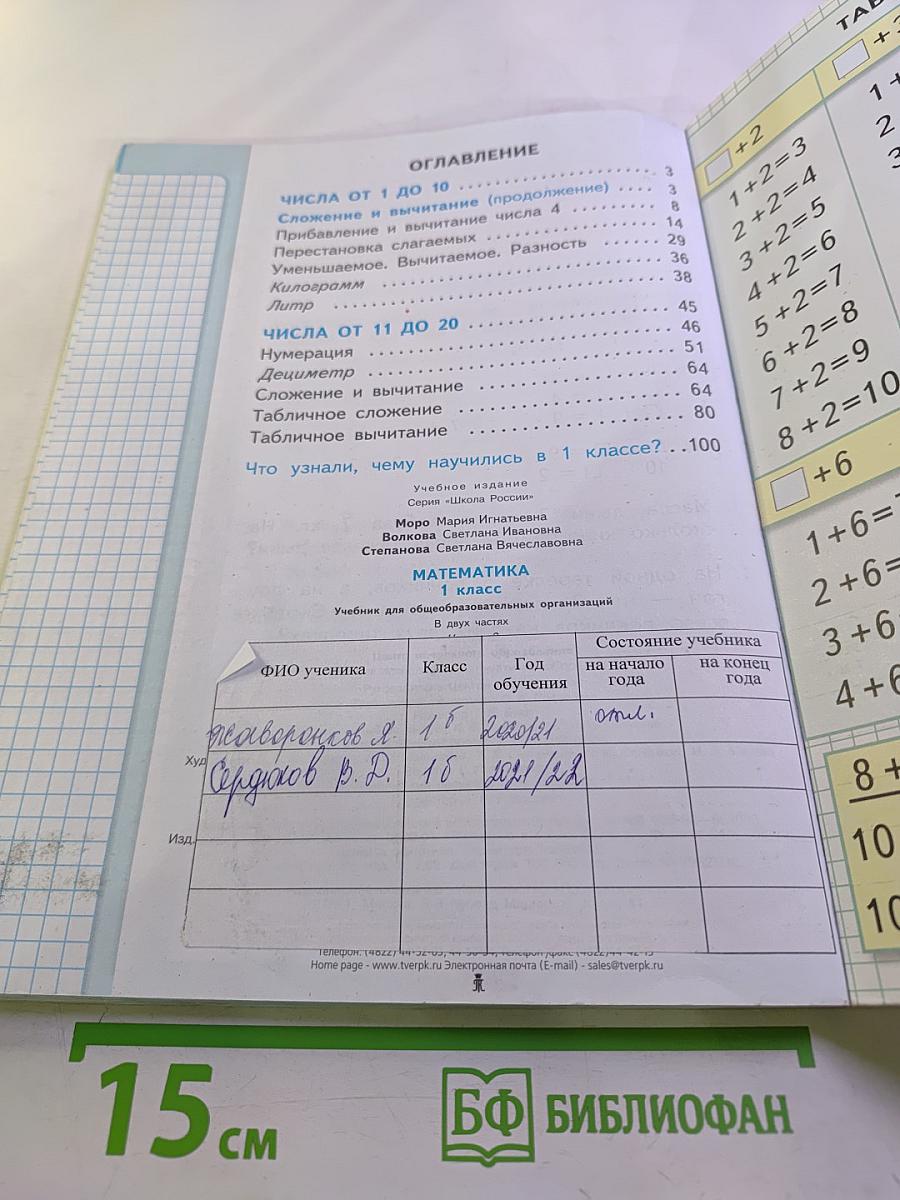 ОГЛАВЛЕНИЕ
ЧИСЛА ОТ 1 ДО 10 .......................... 3
Сложение и вычитание (продолжение) .... 3
Прибавление и вычитание числа 4 ......... 8
Перестановка слагаемых .................... 14
Уменьшаемое. Вычитаемое. Разность ...... 29
Килограмм .................................. 36
Литр ........................................ 38
ЧИСЛА ОТ 11 ДО 20 ......................... 45
Нумерация .................................. 46
Дециметр ................................... 51
Сложение и вычитание ..................... 64
Табличное сложение ....................... 64
Табличное вычитание ...................... 80
Что узнали, чему научились в 1 классе? ..100
Учебное издание
Серия «Школа России»
Моро Мария Игнатьевна
Волкова Светлана Ивановна
Степанова Светлана Вячеславовна
МАТЕМАТИКА
1 класс
Учебник для общеобразовательных организаций
В двух частях
ФИО ученика Класс Год обучения Состояние учебника
на начало года на конец года
Жаворонков Я. 1 б 2020/21 отл.
Худ
Сердюков В. Д. 1 б 2021/22
Изд.
Home page - www.tverpk.ru Электронная почта (E-mail) - sales@tverpk.ru
ТАБ
+2
1+2=3
2+2=4
3+2=5
4+2=6
5+2=7
6+2=8
7+2=9
8+2=10
+6
1+6=
2+6=
3+6
4+6
8+
10
10
+3
1+
2
3
15 см
БФ БИБЛИОФАН